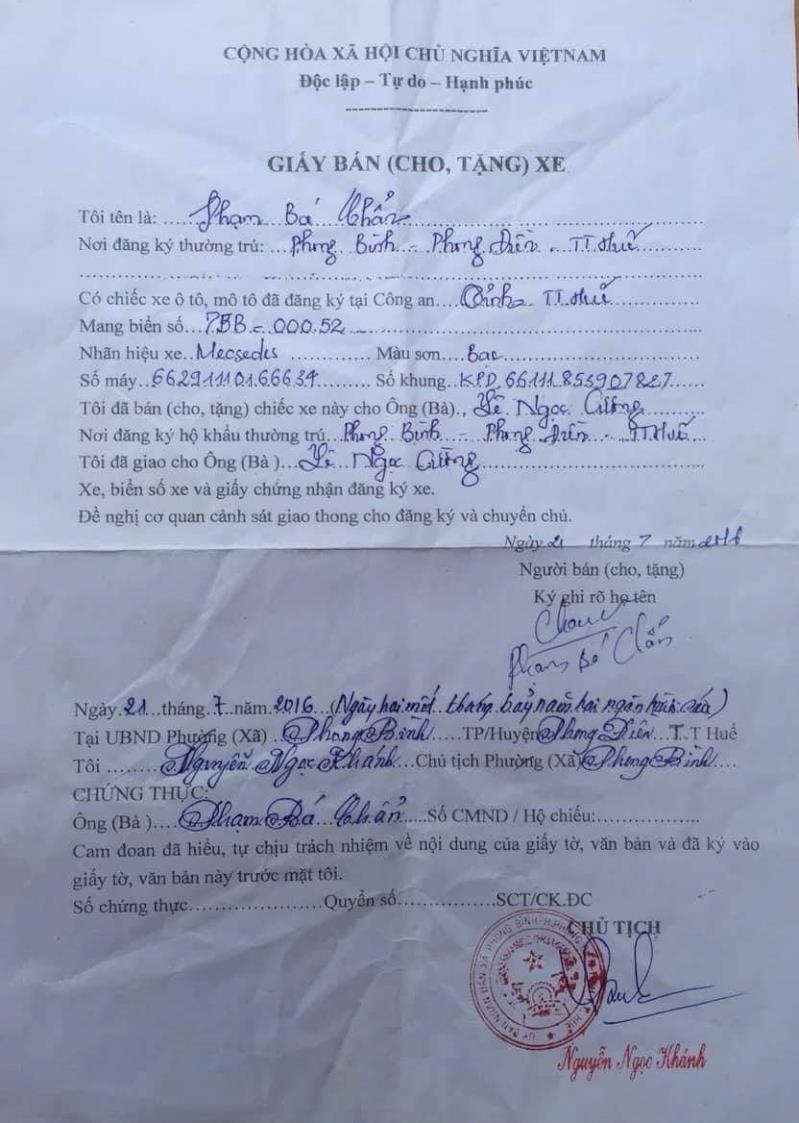 CỘNG HÒA XÃ HỘI CHỦ NGHĨA VIỆTNAM
Độc lập – Tự do – Hạnh phúc
GIẤY BÁN (CHO, TẶNG) XE
Tôi tên là: Phạm Bá Chẩn
Nơi đăng ký thường trú: Phong Bình – Phong Điền – TT Huế
Có chiếc xe ô tô, mô tô đã đăng ký tại Công an Tỉnh TT Huế
Mang biển số 75B – 000.52
Nhãn hiệu xe Mecsedes Màu sơn Bạc
Số máy 66291110166634 Số khung KPD 66111853907827
Tôi đã bán (cho, tặng) chiếc xe này cho Ông (Bà) Lê Ngọc Cường
Nơi đăng ký hộ khẩu thường trú Phong Bình – Phong Điền – TT Huế
Tôi đã giao cho Ông (Bà ) Lê Ngọc Cường
Xe, biển số xe và giấy chứng nhận đăng ký xe.
Đề nghị cơ quan cảnh sát giao thong cho đăng ký và chuyển chủ.
Ngày 21 tháng 7 năm 2016
Người bán (cho, tặng)
Ký ghi rõ họ tên
Phạm Bá Chẩn
Ngày 21 tháng 7 năm 2016 (Ngày hai mốt tháng bảy năm hai ngàn)
Tại UBND Phường (Xã) Phong Bình TP/Huyện Phong Điền T.T Huế
Tôi Nguyễn Ngọc Khánh Chủ tịch Phường (Xã) Phong Bình
CHỨNG THỰC:
Ông (Bà ) Phạm Bá Chẩn Số CMND / Hộ chiếu:
Cam đoan đã hiểu, tự chịu trách nhiệm về nội dung của giấy tờ, văn bản và đã ký vào
giấy tờ, văn bản này trước mặt tôi.
Số chứng thực Quyển số SCT/CK.ĐC
CHỦ TỊCH
Nguyễn Ngọc Khánh